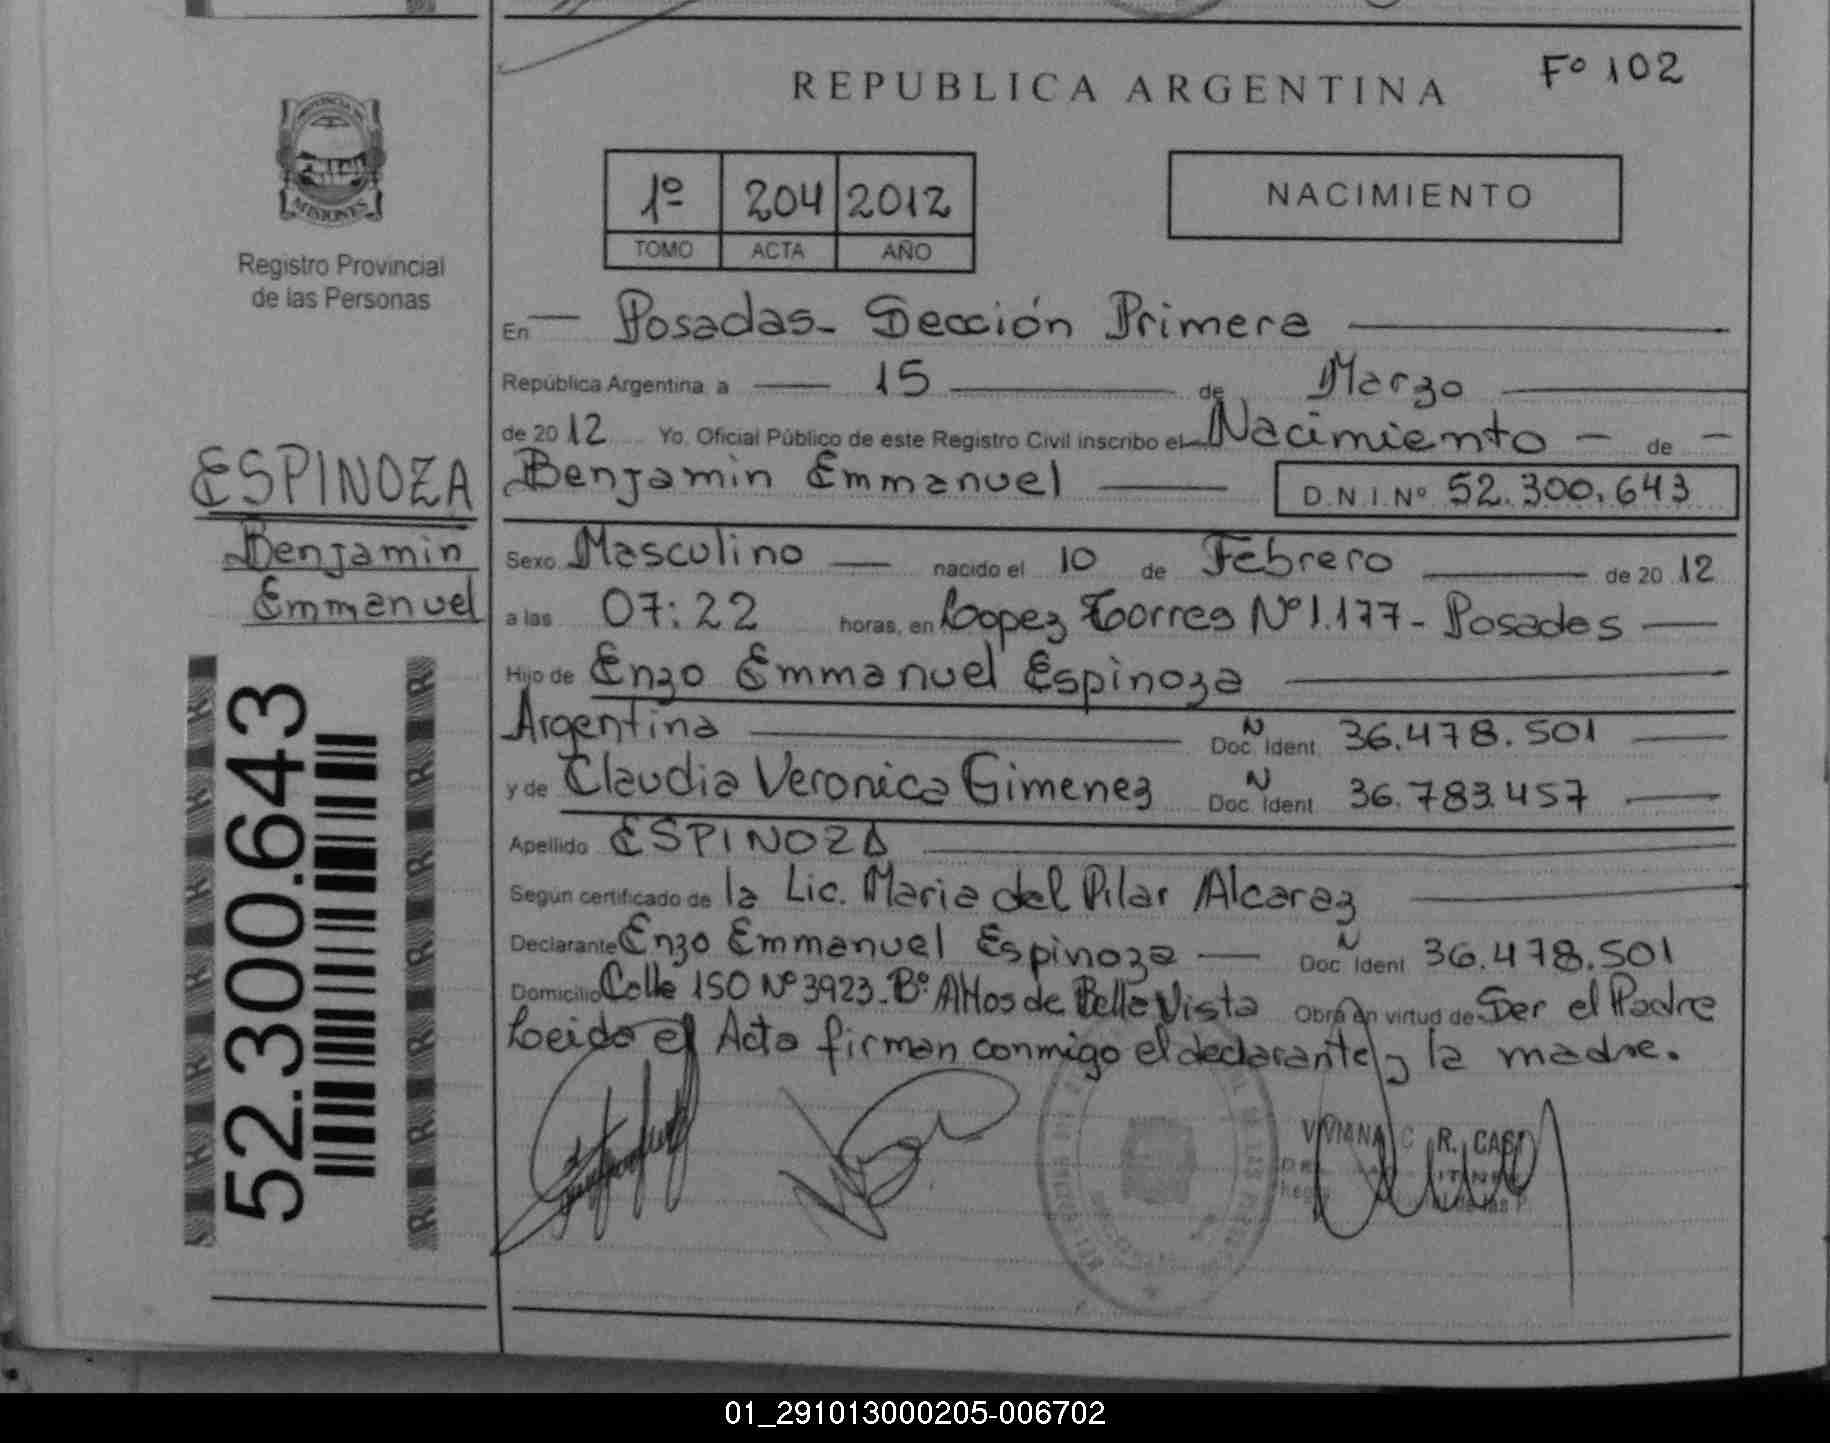 Fº 102
REPUBLICA ARGENTINA
PROVINCIA DE
MISIONES
Registro Provincial
de las Personas
1º 204 2012
TOMO ACTA AÑO
NACIMIENTO
En — Posadas - Sección Primera
República Argentina a — 15 — de Marzo
de 2012 Yo. Oficial Público de este Registro Civil inscribo el Nacimiento — de —
Benjamin Emmanuel — D.N.I.Nº 52.300.643
ESPINOZA
Benjamin
Emmanuel
Sexo Masculino — nacido el 10 de Febrero — de 2012
a las 07:22 horas, en Lopez Torres Nº 1.177 - Posadas —
Hijo de Enzo Emmanuel Espinoza —
Argentina — Doc. Ident. N 36.478.501 —
y de Claudia Veronica Gimenez Doc. Ident. N 36.783.457 —
Apellido ESPINOZA —
Según certificado de la Lic. Maria del Pilar Alcaraz —
Declarante Enzo Emmanuel Espinoza — Doc. Ident N 36.478.501
Domicilio Calle 150 Nº 3923 - Bº Altos de Bella Vista Obra en virtud de Ser el Padre
Leida el Acta firman conmigo el declarante y la madre.
52.300.643
VIVIANA C. R.
01_291013000205-006702